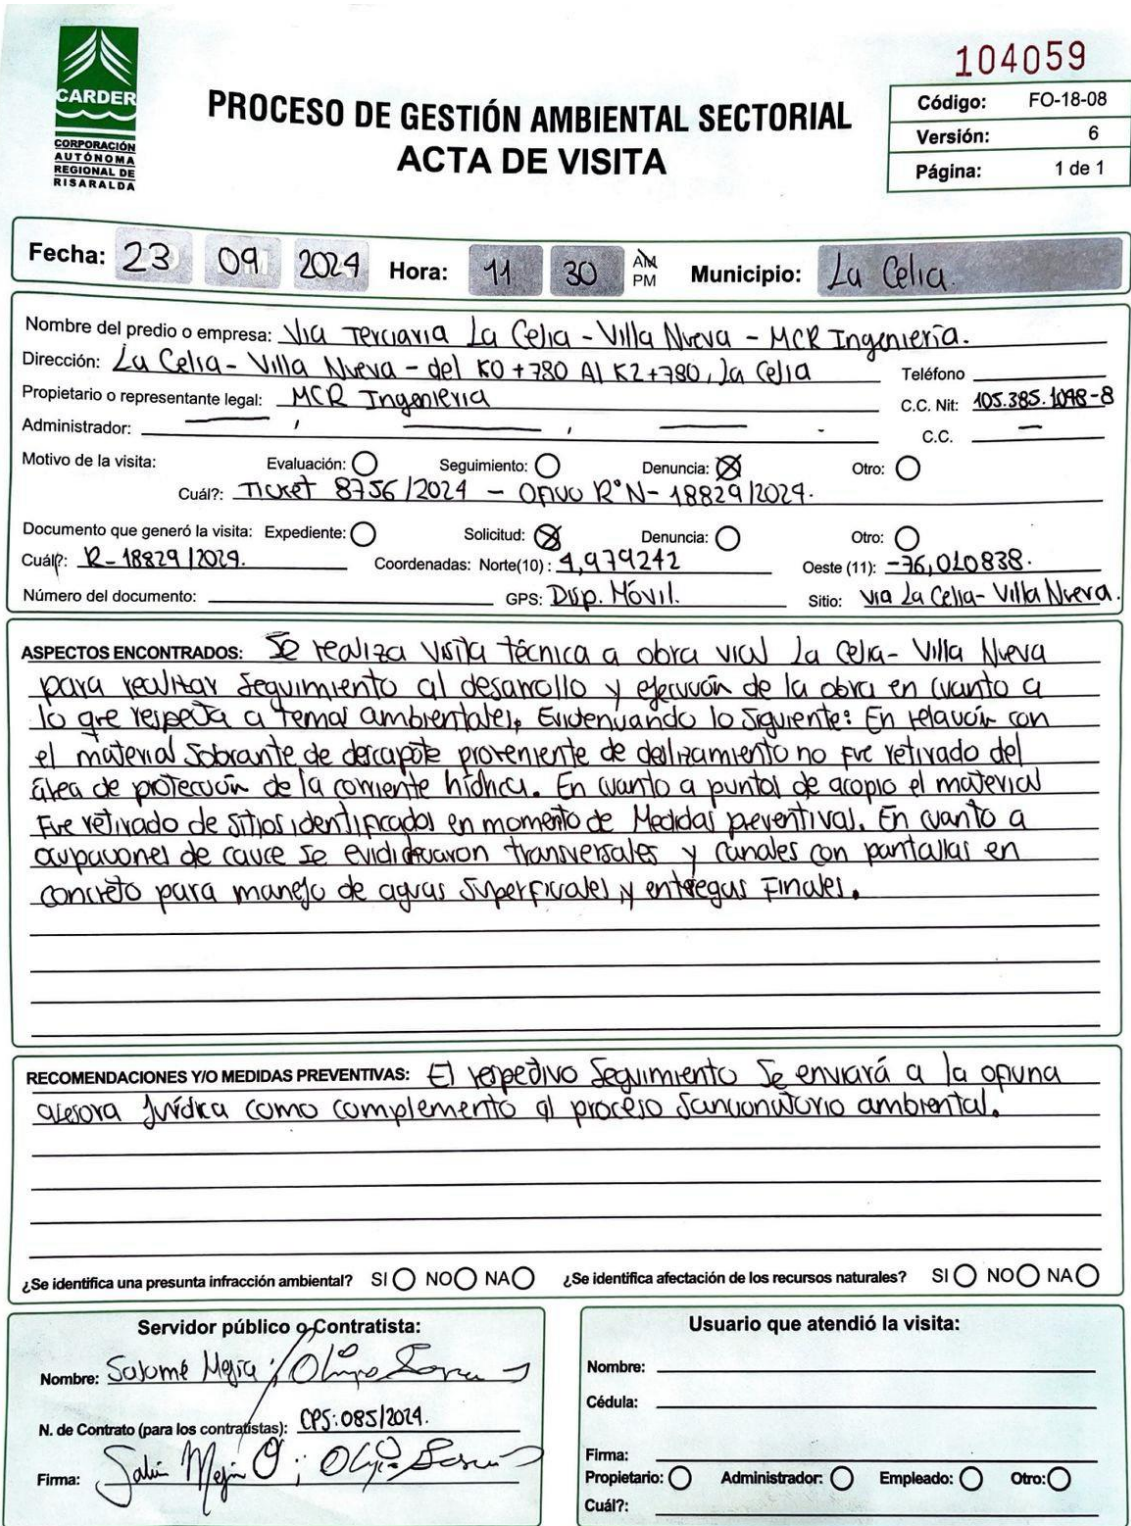 104059
CARDER
CORPORACIÓN
AUTÓNOMA
REGIONAL DE
RISARALDA
PROCESO DE GESTIÓN AMBIENTAL SECTORIAL
ACTA DE VISITA
Código: FO-18-08
Versión: 6
Página: 1 de 1
Fecha: 23 09 2024 Hora: 11 30 AM PM Municipio: La Celia.
Nombre del predio o empresa: Via Terciaria La Celia - Villa Nueva - MCR Ingeniería.
Dirección: La Celia - Villa Nueva - del K0+780 Al K2+780, La Celia Teléfono
Propietario o representante legal: MCR Ingenieria C.C. Nit: 105.385.1098-8
Administrador: C.C.
Motivo de la visita: Evaluación: Seguimiento: Denuncia: Otro:
Cuál?: Ticket 8756/2024 - Oficio R°N-18829/2024.
Documento que generó la visita: Expediente: Solicitud: Denuncia: Otro:
Cuál?: R-18829/2024. Coordenadas: Norte(10): 4,979242 Oeste (11): -76,010838.
Número del documento: GPS: Disp. Móvil. Sitio: via La Celia - Villa Nueva.
ASPECTOS ENCONTRADOS: Se realiza visita técnica a obra vial La Celia - Villa Nueva
para realizar seguimiento al desarrollo y ejecución de la obra en cuanto a
lo que respecta a temas ambientales, Evidenciando lo siguiente: En relación con
el material sobrante de descapote proveniente de deslizamiento no fue retirado del
área de protección de la corriente hídrica. En cuanto a puntos de acopio el material
Fue retirado de sitios identificados en momento de Medidas preventivas. En cuanto a
ocupaciones de cauce se transversales y canales con pantallas en
concreto para manejo de aguas superficiales y entregas Finales.
RECOMENDACIONES Y/O MEDIDAS PREVENTIVAS: El respectivo Seguimiento Se enviará a la oficina
asesora Jurídica como complemento al proceso sancionatorio ambiental.
¿Se identifica una presunta infracción ambiental? SI NO NA ¿Se identifica afectación de los recursos naturales? SI NO NA
Servidor público o Contratista:
Nombre: Salomé Mejia
N. de Contrato (para los contratistas): CPS:085/2024.
Firma:
Usuario que atendió la visita:
Nombre:
Cédula:
Firma:
Propietario: Administrador: Empleado: Otro:
Cuál?: